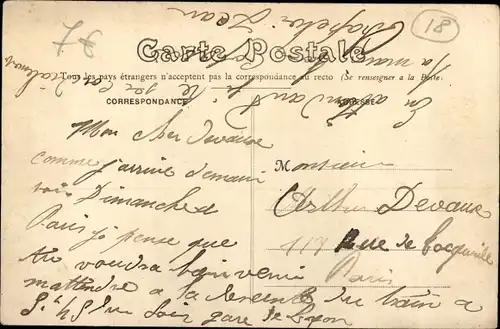 18
Carte Postale
Tous les pays étrangers n'acceptent pas la correspondance au recto (Se renseigner a la Poste)
CORRESPONDANCE
ADRESSE
Mon cher Devaux
comme j'arrive demain
soir Dimanche a
Paris je pense que
tu voudra bien venir
m'attendre a la descente du train a
du soir gare de Lyon
Monsieur
Arthur Devaux
117 Rue de
Paris